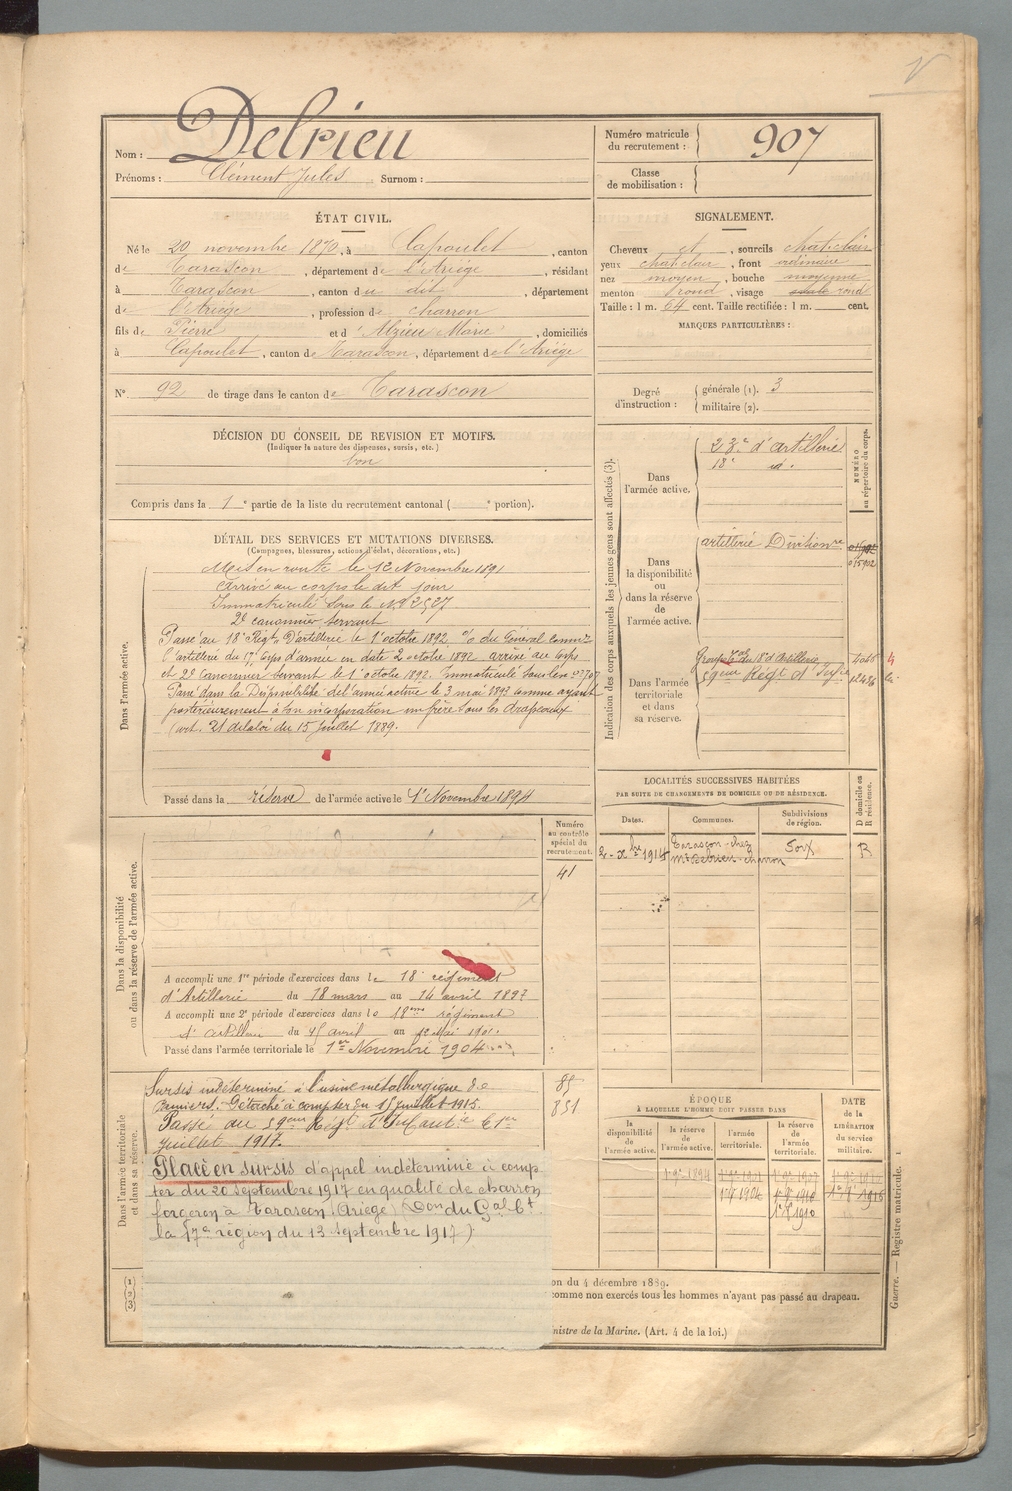 Nom : Delrieu
Prénoms : Clément Jules Surnom :
Numéro matricule
du recrutement : 907
Classe
de mobilisation :
ÉTAT CIVIL.
Né le 20 novembre 1870, à Capoulet, canton
de Tarascon, département de l'Ariège, résidant
à Tarascon, canton du dit, département
de l'Ariège, profession de charron
fils de Pierre et d'Alzieu Marie, domiciliés
à Capoulet, canton de Tarascon, département de l'Ariége
N° 92 de tirage dans le canton de Tarascon
SIGNALEMENT.
Cheveux et, sourcils chat. clair
yeux chat. clair, front ordinaire
nez moyen, bouche moyenne
menton rond, visage rond
Taille : 1 m. 64 cent. Taille rectifiée : 1 m. cent.
MARQUES PARTICULIÈRES :
Degré
d'instruction : générale (1). 3
militaire (2).
DÉCISION DU CONSEIL DE REVISION ET MOTIFS.
(Indiquer la nature des dispenses, sursis, etc.)
bon
Compris dans la 1e partie de la liste du recrutement cantonal ( e portion).
DÉTAIL DES SERVICES ET MUTATIONS DIVERSES.
(Campagnes, blessures, actions d'éclat, décorations, etc.)
Dans l'armée active.
Mis en route le 12 Novembre 1891
Arrivé au corps le dit jour
Immatriculé sous le N° 2527
2e canonnier servant
Passé au 18e Régt d'artillerie le 1er octobre 1892 du Général comm
l'artillerie du 17e corps d'armée en date 2 octobre 1892 arrivé au corps
et 2e Canonnier servant le 1er octobre 1892. Immatriculé sous le n°
Passé dans la Disponibilité de l'armée active le 3 mai 1893 comme ayant
postérieurement à son incorporation un frère sous les drapeaux
(art. 21 de la loi du 15 Juillet 1889.
Passé dans la réserve de l'armée active le 1er Novembre 1894
Indication des corps auxquels les jeunes gens sont affectés (3).
NUMÉRO
au répertoire du corps.
Dans
l'armée active.
23e d'artillerie
18e id.
Dans
la disponibilité
ou
dans la réserve
de
l'armée active.
artillerie Divisionre
015902
Dans l'armée
territoriale
et dans
sa réserve.
Groupe du 18e d'Artillerie
59eme Régt d'Infie
LOCALITÉS SUCCESSIVES HABITÉES
PAR SUITE DE CHANGEMENTS DE DOMICILE OU DE RÉSIDENCE.
Dates. Communes. Subdivisions
de région. D domicile ou
R résidence.
2 - Xbre 1914 Tarascon - chez Foix R
Mr Delrieu - charron
Dans la disponibilité
ou dans la réserve de l'armée active.
Numéro
au contrôle
spécial du
recrutement.
41
A accompli une 1re période d'exercices dans le 18e régiment
d'Artillerie du 18 mars au 14 avril 1897
A accompli une 2e période d'exercices dans le régiment
d'artillerie du avril au Mai
Passé dans l'armée territoriale le 1er Novembre 1904
Dans l'armée territoriale
et dans sa réserve.
Sursis indéterminé à l'usine métallurgique de
Pamiers. Détaché à compter du 15 Juillet 1915.
Passé au 59eme Régt d'Infanterie le 1er
Juillet 1917.
Placé en sursis d'appel indéterminé à comp-
ter du 20 septembre 1917 en qualité de charron
forgeron à Tarascon (Ariège) (Don du Gal Ct
la 17e région du 13 septembre 1917)
85
851
ÉPOQUE
À LAQUELLE L'HOMME DOIT PASSER DANS
la
disponibilité
de
l'armée active.
la réserve
de
l'armée active.
l'armée
territoriale.
la réserve
de
l'armée
territoriale.
DATE
de la
LIBÉRATION
du service
militaire.
(1)
(2)
(3)
on du 4 décembre 1889.
comme non exercés tous les hommes n'ayant pas passé au drapeau.
nistre de la Marine. (Art. 4 de la loi.)
Guerre. — Registre matricule. 1